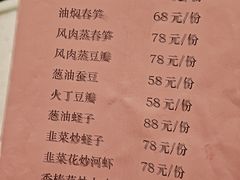 油焖春笋 68元/份
风肉蒸春笋 78元/份
风肉蒸豆瓣 78元/份
葱油蚕豆 58元/份
火丁豆瓣 58元/份
葱油蛏子 88元/份
韭菜炒蛏子 78元/份
韭菜花炒河虾 78元/份